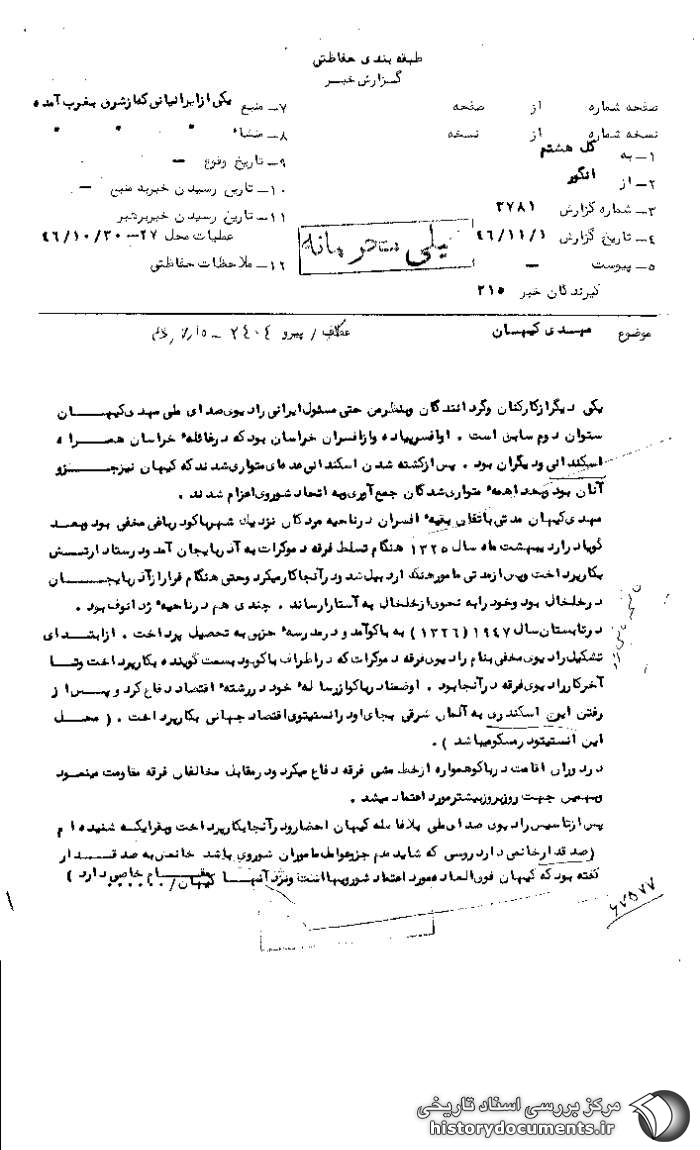 طبقه بندی حفاظتی
گزارش خبر
صفحه شماره از صفحه
نسخه شماره از نسخه
۱- به کل هشتم
۲- از انگور
۳- شماره گزارش ۲۷۸۱
۴- تاریخ گزارش ۴۶/۱۱/۱
۵- پیوست -
گیرندگان خبر ۲۱۵
۷- منبع یکی از ایرانیانی که از شرق بغرب آمده
۸- منشاء " " " "
۹- تاریخ وقوع -
۱۰- تاریخ رسیدن خبر به منبع -
۱۱- تاریخ رسیدن خبر برهبر
عملیات محل ۲۷-۴۶/۱۰/۳۰
۱۲- ملاحظات حفاظتی
خیلی محرمانه
موضوع مهدی کیهان
عطف / پیرو ۲۴۰۴
یکی دیگر از کارکنان و گردانندگان و بنظر من حتی مسئول ایرانی رادیوی صدای ملی مهدی کیهان
ستوان دوم سابق است . او افسر پیاده و از افسران خراسان بود که در غائله خراسان همراه
اسکندانی و دیگران بود . پس از کشته شدن اسکندانی عده ای متواری شدند که کیهان نیز جزو
آنان بود و بعدا همه متواری شدگان جمع آوری و به اتحاد شوروی اعزام شدند .
مهدی کیهان مدتی با تفاق بقیه افسران در ناحیه مردکان نزدیک شهر باکو در باغی مخفی بود و بعد
گویا در اردیبهشت ماه سال ۱۳۲۵ هنگام تسلط فرقه دموکرات به آذربایجان آمد و در ستاد ارتش
بکار پرداخت و پس از مدتی مامور هنگ اردبیل شد و در آنجا کار میکرد و حتی هنگام فرار از آذربایجان
در خلخال بود و خود را به نحوی از خلخال به آستارا رساند . چندی هم در ناحیه ژدانوف بود .
در تابستان سال ۱۹۴۷ (۱۳۲۶) به باکو آمد و در مدرسه حزبی به تحصیل پرداخت . از ابتدای
تشکیل رادیوی مخفی بنام رادیوی فرقه دموکرات که در اطراف باکو بود بسمت گوینده بکار پرداخت و تا
آخر کار رادیوی فرقه در آنجا بود . او ضمنا در باکو از رساله خود در رشته اقتصاد دفاع کرد و پس از
رفتن ایرج اسکندری به آلمان شرقی بجای او در انستیتوی اقتصاد جهانی بکار پرداخت . ( محل
این انستیتو در مسکو میباشد ) .
در دوران اقامت در باکو همواره از خط مشی فرقه دفاع میکرد و در مقابل مخالفان فرقه مقاومت مینمود
و بهمین جهت روز بروز بیشتر مورد اعتماد میشد .
پس از تاسیس رادیوی صدای ملی بلافاصله کیهان احضار و در آنجا بکار پرداخت و بقراریکه شنیده ام
( صدقدار خانمی دارد روسی که شاید هم جزو عوامل ماموران شوروی باشد خانمش به صدقدار
گفته بود که کیهان فوق العاده مورد اعتماد شورویها است و نزد آنها کیهان / مقام خاصی دارد )
۶۷۵۷۷
مرکز بررسی اسناد تاریخی
historydocuments.ir